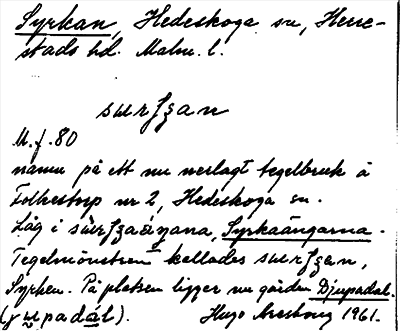 Syrkan, Hedeskoga sn, Herre-
stads hd. Malm. l.
surʃʒan
M. f. 80
namn på ett nu nerlagt tegelbruk å
Folkestorp nr 2, Hedeskoga sn.
Låg i Syrkaängarna.
Tegelmönstren kallades surʃʒen,
Syrken. På platsen ligger nu gården Djupadal.
Hugo Areskoug 1961.